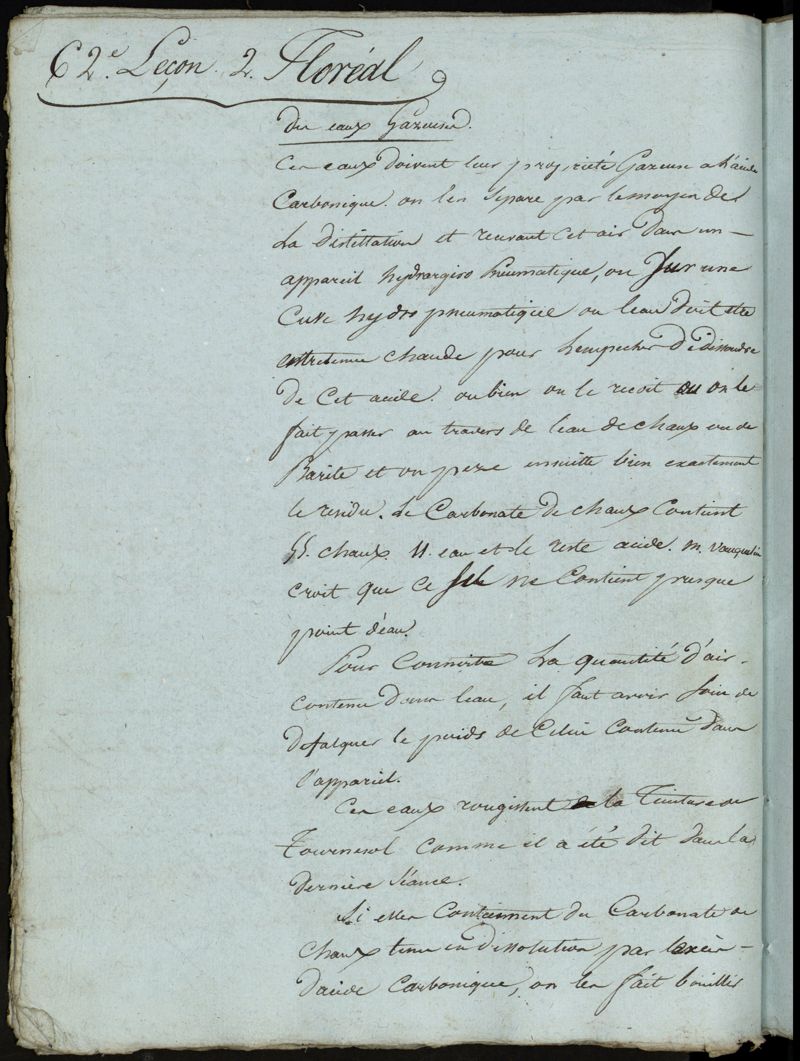 62e. Leçon 2. Floréal
Des eaux Gazeuses.
Ces eaux doivent leur propriété Gazeuse a L'acide
Carbonique. on len separe par le moyen de
La distillation et recevant Cet air dans un
appareil hydrargiro Pneumatique, ou Sur une
Cuve hydro pneumatique ou leau doit etre
entretenue chaude pour Lempecher De dissoudre
De Cet acide. ou bien on le recoit ou on le
fait passer au travers de leau de chaux ou de
Barite et on peze ensuitte bien exactement
le residu. Le Carbonate De chaux Contient
55. chaux. 11. eau et le reste acide. m. vauquelin
croit que ce Sel ne Contient presque
point d'eau.
Pour Connoitre La quantité d'air
contenu dans leau, il faut avoir soin de
Defalquer le poids de Celui Contenu dans
l'appareil.
Ces eaux rougissent la Teinture de
Tournesol comme il a été dit dans la
derniere séance.
Si elles Contiennent du Carbonate de
chaux tenu en dissolution par lexcès
dacide Carbonique, on les fait bouillir